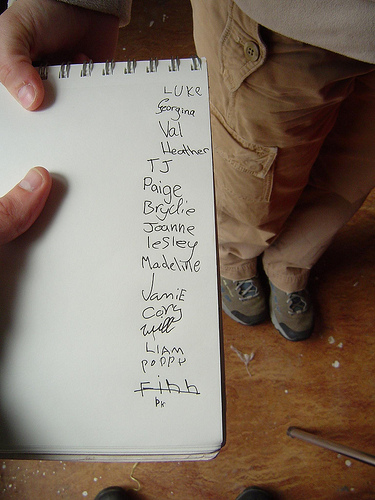 LUKe
Georgina
Val
Heather
TJ
Paige
Brydie
Joanne
lesley
Madeline
JamiE
Cory
Will
LIAM
POPPY
Finn
PK